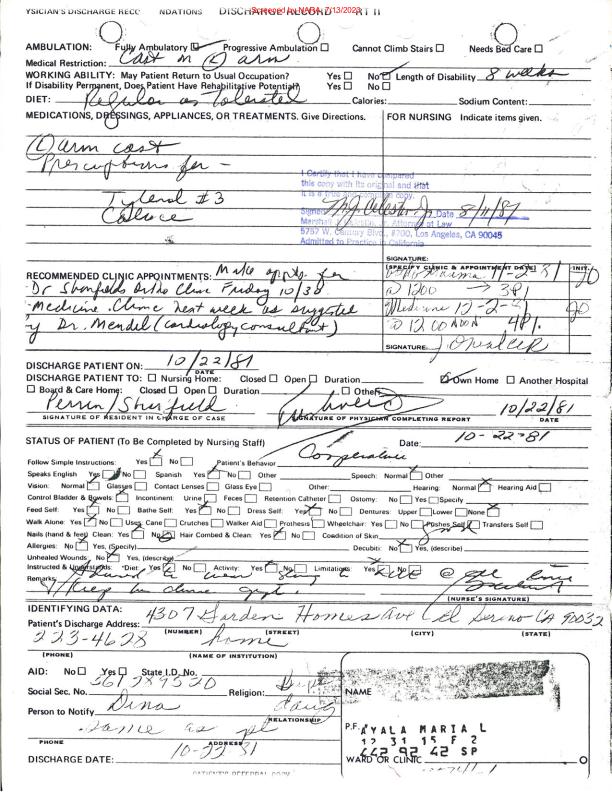 YSICIAN'S DISCHARGE RECC NDATIONS DISCHARGE RECORD RT II
Screened by NARA, 7/13/2023
AMBULATION: Fully Ambulatory ☑ Progressive Ambulation ☐ Cannot Climb Stairs ☐ Needs Bed Care ☐
Medical Restriction: Cast on (L) arm
WORKING ABILITY: May Patient Return to Usual Occupation? Yes ☐ No ☑ Length of Disability 8 weeks
If Disability Permanent, Does Patient Have Rehabilitative Potential? Yes ☐ No ☐
DIET: Regular as tolerated Calories: Sodium Content:
MEDICATIONS, DRESSINGS, APPLIANCES, OR TREATMENTS. Give Directions. FOR NURSING Indicate items given.
(L) arm cast
Prescriptions for -
Tylenol #3
Colace
I Certify that I have compared
this copy with its original and that
it is a true and complete copy.
Signed Date 8/11/87
Attorney at Law
5757 W. Century Blvd., #700, Los Angeles, CA 90045
Admitted to Practice in California
SIGNATURE:
(SPECIFY CLINIC & APPOINTMENT DATE) INIT.
RECOMMENDED CLINIC APPOINTMENTS: Make appts. for
Dr Shenfields Ortho Clinic Friday 10/30
Medicine Clinic next week as suggested
y Dr. Mendel (cardiology consultant)
11-2-81
@ 1200 → 3P1
Medicine 12-2-81
@ 12 00 NOON 4P1.
SIGNATURE:
DISCHARGE PATIENT ON: 10/22/81
DATE
DISCHARGE PATIENT TO: ☐ Nursing Home: Closed ☐ Open ☐ Duration ☑ Own Home ☐ Another Hospital
☐ Board & Care Home: Closed ☐ Open ☐ Duration ☐ Other
10/22/81
SIGNATURE OF RESIDENT IN CHARGE OF CASE SIGNATURE OF PHYSICIAN COMPLETING REPORT DATE
STATUS OF PATIENT (To Be Completed by Nursing Staff) Date: 10-22-81
Follow Simple Instructions. Yes ☒ No ☐ Patient's Behavior Cooperative
Speaks English Yes ☐ No ☐ Spanish Yes ☒ No ☐ Other Speech: Normal ☒ Other
Vision: Normal ☐ Glasses ☒ Contact Lenses ☐ Glass Eye ☐ Other: Hearing: Normal ☒ Hearing Aid ☐
Control Bladder & Bowels ☒ Incontinent: Urine ☐ Feces ☐ Retention Catheter ☐ Ostomy: No ☐ Yes ☐ Specify
Feed Self: Yes ☒ No ☐ Bathe Self: Yes ☒ No ☐ Dress Self: Yes ☒ No ☐ Dentures: Upper ☐ Lower ☐ None ☒
Walk Alone: Yes ☒ No ☐ Uses: Cane ☐ Crutches ☐ Walker Aid ☐ Prothesis ☐ Wheelchair: Yes ☐ No ☐ Pushes Self ☐ Transfers Self ☐
Nails (hand & feet) Clean: Yes ☒ No ☐ Hair Combed & Clean: Yes ☒ No ☐ Condition of Skin
Allergies: No ☒ Yes, (Specify) Decubiti: No ☒ Yes, (describe)
Unhealed Wounds: No ☒ Yes, (describe)
Instructed & Understands: *Diet: Yes ☒ No ☐ Activity: Yes ☒ No ☐ Limitations Yes ☒ No ☐
Remarks
(NURSE'S SIGNATURE)
IDENTIFYING DATA:
Patient's Discharge Address: 4307 Garden Homes Ave El Sereno CA 90032
(NUMBER) (STREET) (CITY) (STATE)
223-4628 home
(PHONE) (NAME OF INSTITUTION)
AID: No ☐ Yes ☐ State I.D. No.
Social Sec. No. Religion: NAME
Person to Notify Dina daug
RELATIONSHIP
same as pt
PHONE ADDRESS
DISCHARGE DATE: 10-22-81
P.F. AYALA MARIA L
12 31 15 F 2
442 92 42 SP
WARD OR CLINIC
PATIENT'S REFERRAL COPY